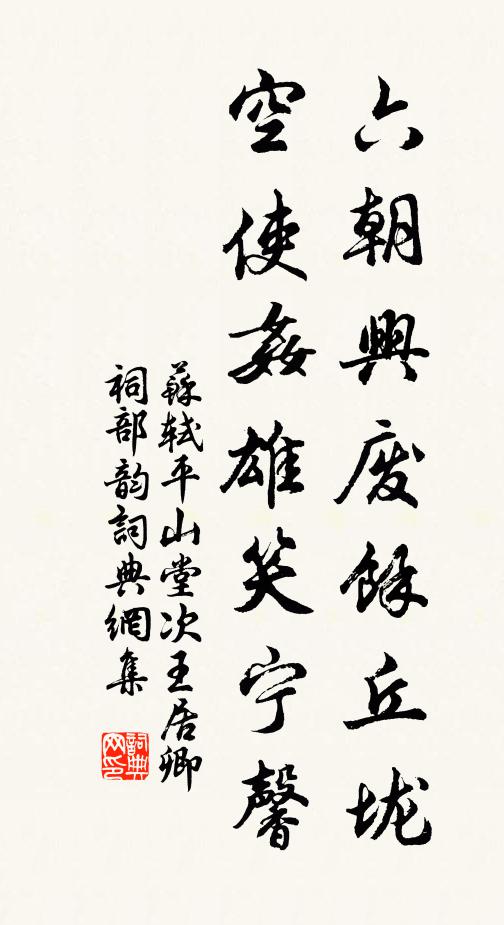 六朝興廢餘丘垅
空使姦雄笑宁馨
蘇軾平山堂次王居卿
祠部韵詞典網集
詞典网印